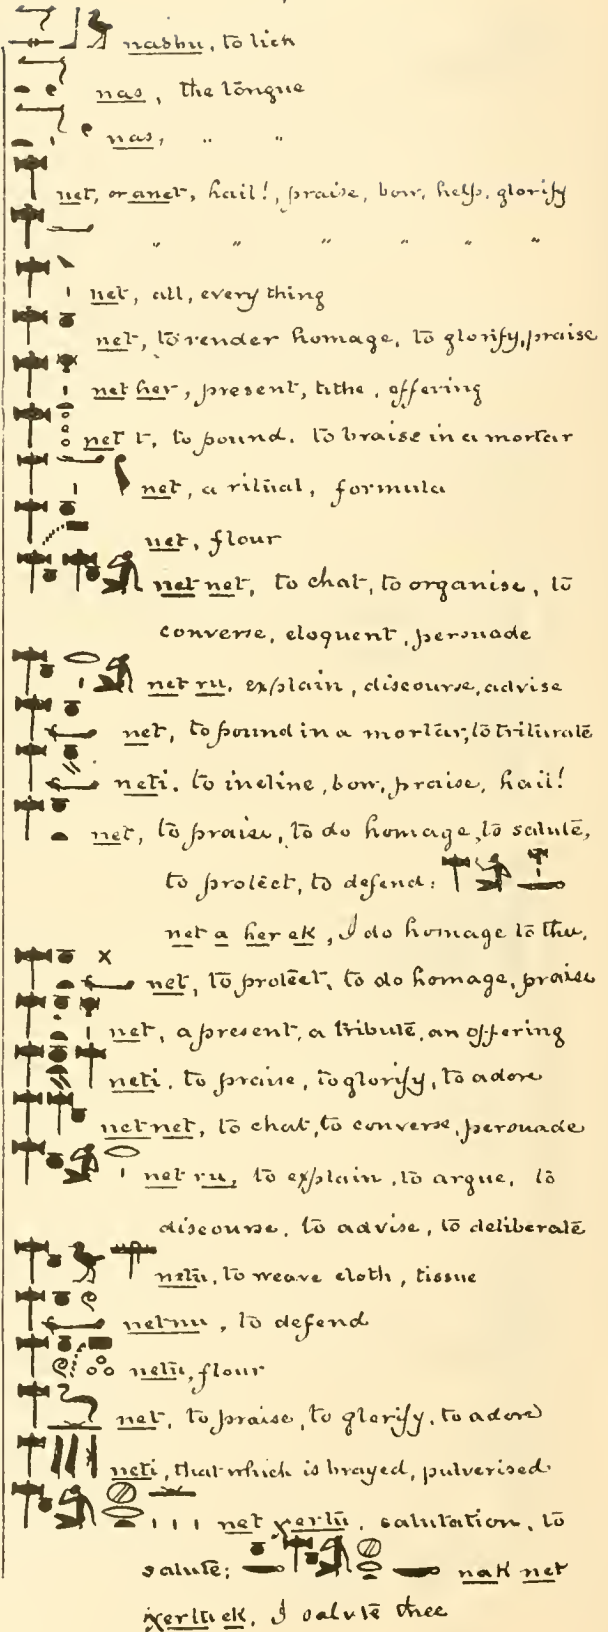 nasbu, to lick
nas, the tongue
nas, " "
net, or anet, hail!, praise, bow, help, glorify
" " " " " "
net, all, every thing
net, to render homage, to glorify, praise
net her, present, tithe, offering
net t, to pound. to braise in a mortar
net, a ritual, formula
net, flour
net net, to chat, to organise, to
converse, eloquent, persuade
net ru. explain, discourse, advise
net, to pound in a mortar, to triturate
neti. to incline, bow, praise, hail!
net, to praise, to do homage, to salute,
to protect, to defend:
net a her ek, I do homage to thee.
net, to protect, to do homage, praise
net, a present, a tribute, an offering
neti. to praise, to glorify, to adore
netnet, to chat, to converse, persuade
net ru, to explain, to argue, to
discourse, to advise, to deliberate
netu, to weave cloth, tissue
netnu, to defend
netu, flour
net, to praise, to glorify, to adore
neti, that which is brayed, pulverised
net χertu. salutation, to
salute: nak net
χertuek, I salute thee